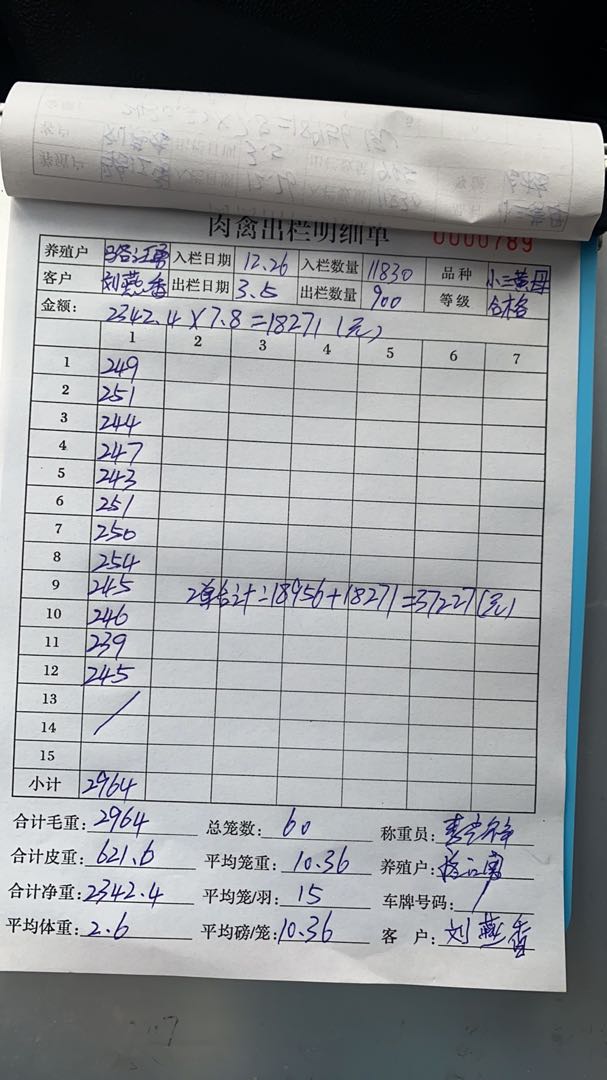 肉禽出栏明细单 0000789
养殖户 入栏日期 12.26 入栏数量 11830 品种 小三黄母
客户 刘燕香 出栏日期 3.5 出栏数量 900 等级 合格
金额: 2342.4×7.8=18271(元)
1 2 3 4 5 6 7
1 249
2 251
3 244
4 247
5 243
6 251
7 250
8 254
9 245 2单合计=18956+18271=37227(元)
10 246
11 239
12 245
13
14
15
小计 2964
合计毛重: 2964 总笼数: 60 称重员:
合计皮重: 621.6 平均笼重: 10.36 养殖户:
合计净重: 2342.4 平均笼/羽: 15 车牌号码: /
平均体重: 2.6 平均磅/笼: 10.36 客 户: 刘燕香